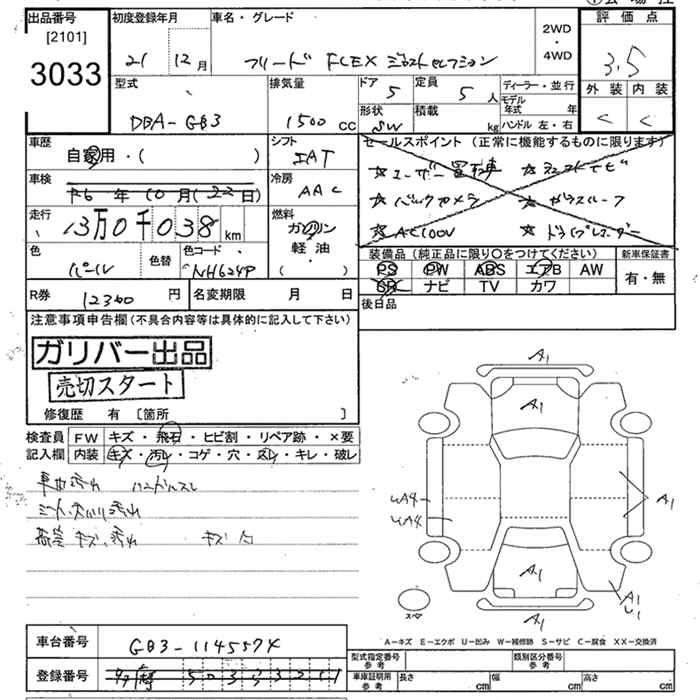 出品番号 初度登録年月 車名・グレード 評価点
[2101]
3033
21 12月 フリード FLEX ジャストセレクション 2WD・4WD 3.5
型式 排気量 ドア 定員 ディーラー・並行 外装 内装
5 5人 モデル年式 年
DBA-GB3 1500cc 形状 SW 積載 kg ハンドル 左・右 C C
車歴 シフト セールスポイント(正常に機能するものに限ります)
自家用・( ) IAT ☆ユーザー買取車
車検 冷房 ☆バックカメラ ☆ガラスルーフ
年 10月(22日) AAC ☆AC100V
走行 13万0千038km 燃料 ガソリン
軽油
( )
色 パール 色替 色コード NH624P 装備品(純正品に限り○をつけてください) 新車保証書
PS PW ABS エアB AW 有・無
SR ナビ TV カワ
R券 12300円 名変期限 月 日 後日品
注意事項申告欄(不具合内容等は具体的に記入して下さい)
ガリバー出品
売切スタート
修復歴 有 [箇所 ]
検査員 FW キズ・飛石・ヒビ割・リペア跡・×要
記入欄 内装 キズ・汚レ・コゲ・穴・スレ・キレ・破レ
車内汚れ ハンドルスレ
シート、天バリ汚れ
荷室キズ、汚れ
A1
A1
A1
UA4
UA4
A1
A1
U1
スペア
A1
A-キズ E-エクボ U-凹み W-補修跡 S-サビ C-腐食 XX-交換済
車台番号 GB3-1145574
型式指定番号 参考 類別区分番号 参考
登録番号
車庫証明用 参考 長さ cm 幅 cm 高さ cm